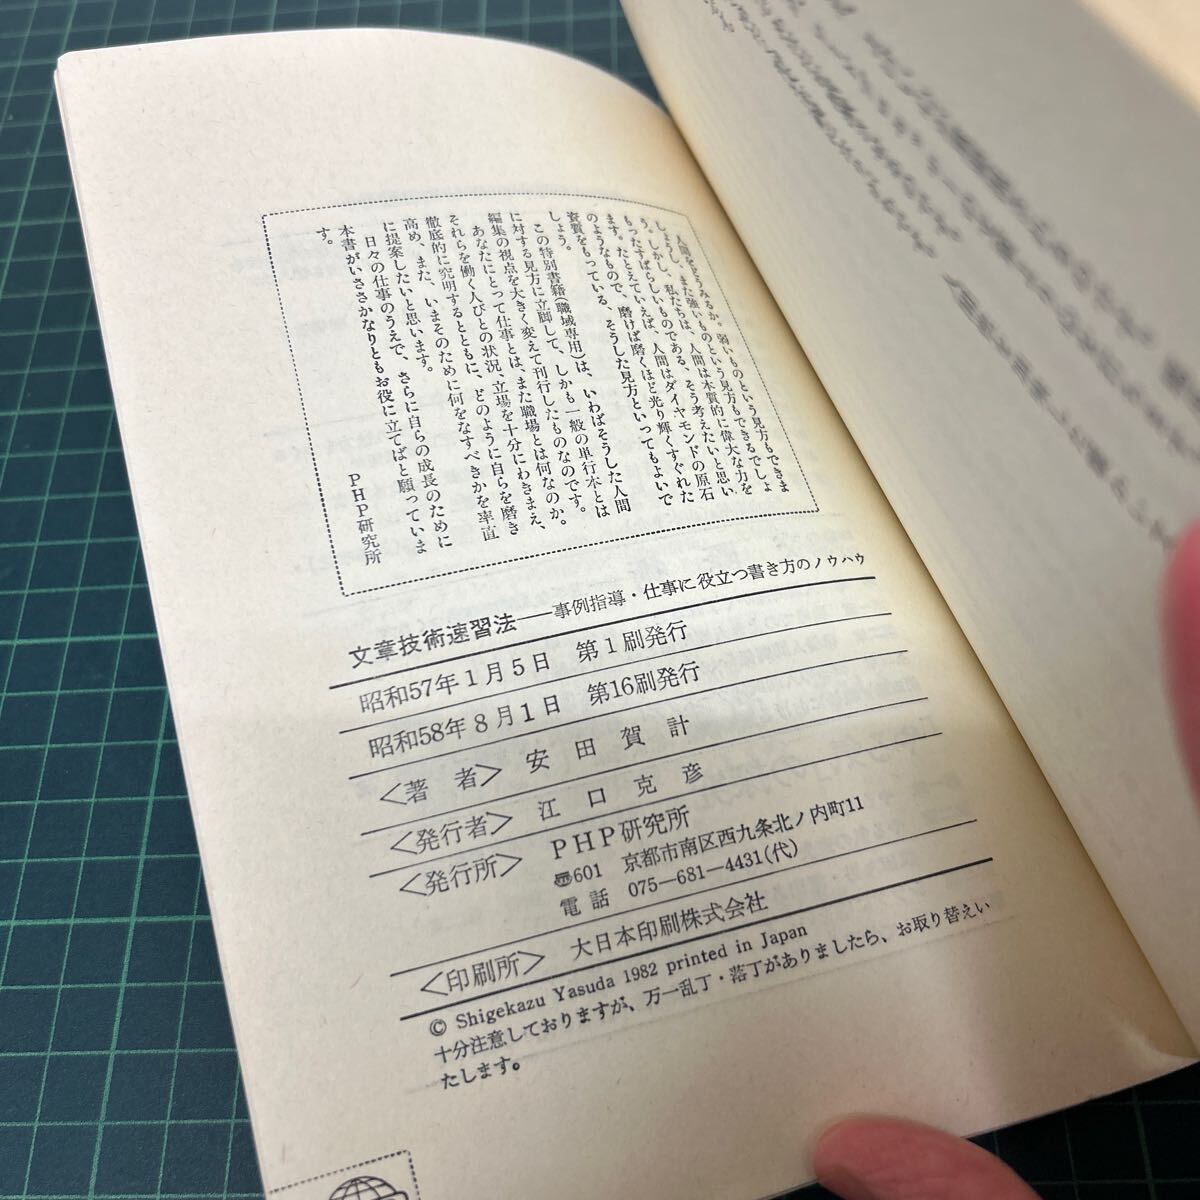 人間をどうみるか。弱いものという見方もできま
しょうし、また強いものという見方もできるでしょ
う。しかし、私たちは、人間は本質的に偉大な力を
もったすばらしいものである、そう考えたいと思い
ます。たとえていえば、人間はダイヤモンドの原石
のようなもので、磨けば磨くほど光り輝くすぐれた
資質をもっている、そうした見方といってもよいで
しょう。
この特別書籍(職域専用)は、いわばそうした人間
に対する見方に立脚して、しかも一般の単行本とは
編集の視点を大きく変えて刊行したものなのです。
あなたにとって仕事とは、また職場とは何なのか。
それらを働く人びとの状況、立場を十分にわきまえ、
徹底的に究明するとともに、どのように自らを磨き
高め、また、いまそのために何をなすべきかを率直
に提案したいと思います。
日々の仕事のうえで、さらに自らの成長のために
本書がいささかなりともお役に立てばと願っていま
す。
PHP研究所
文章技術速習法——事例指導・仕事に役立つ書き方のノウハウ
昭和57年1月5日 第1刷発行
昭和58年8月1日 第16刷発行
〈著者〉 安田賀計
〈発行者〉 江口克彦
〈発行所〉 PHP研究所
〠601 京都市南区西九条北ノ内町11
電話 075―681―4431(代)
〈印刷所〉 大日本印刷株式会社
© Shigekazu Yasuda 1982 printed in Japan
十分注意しておりますが、万一乱丁・落丁がありましたら、お取り替えい
たします。